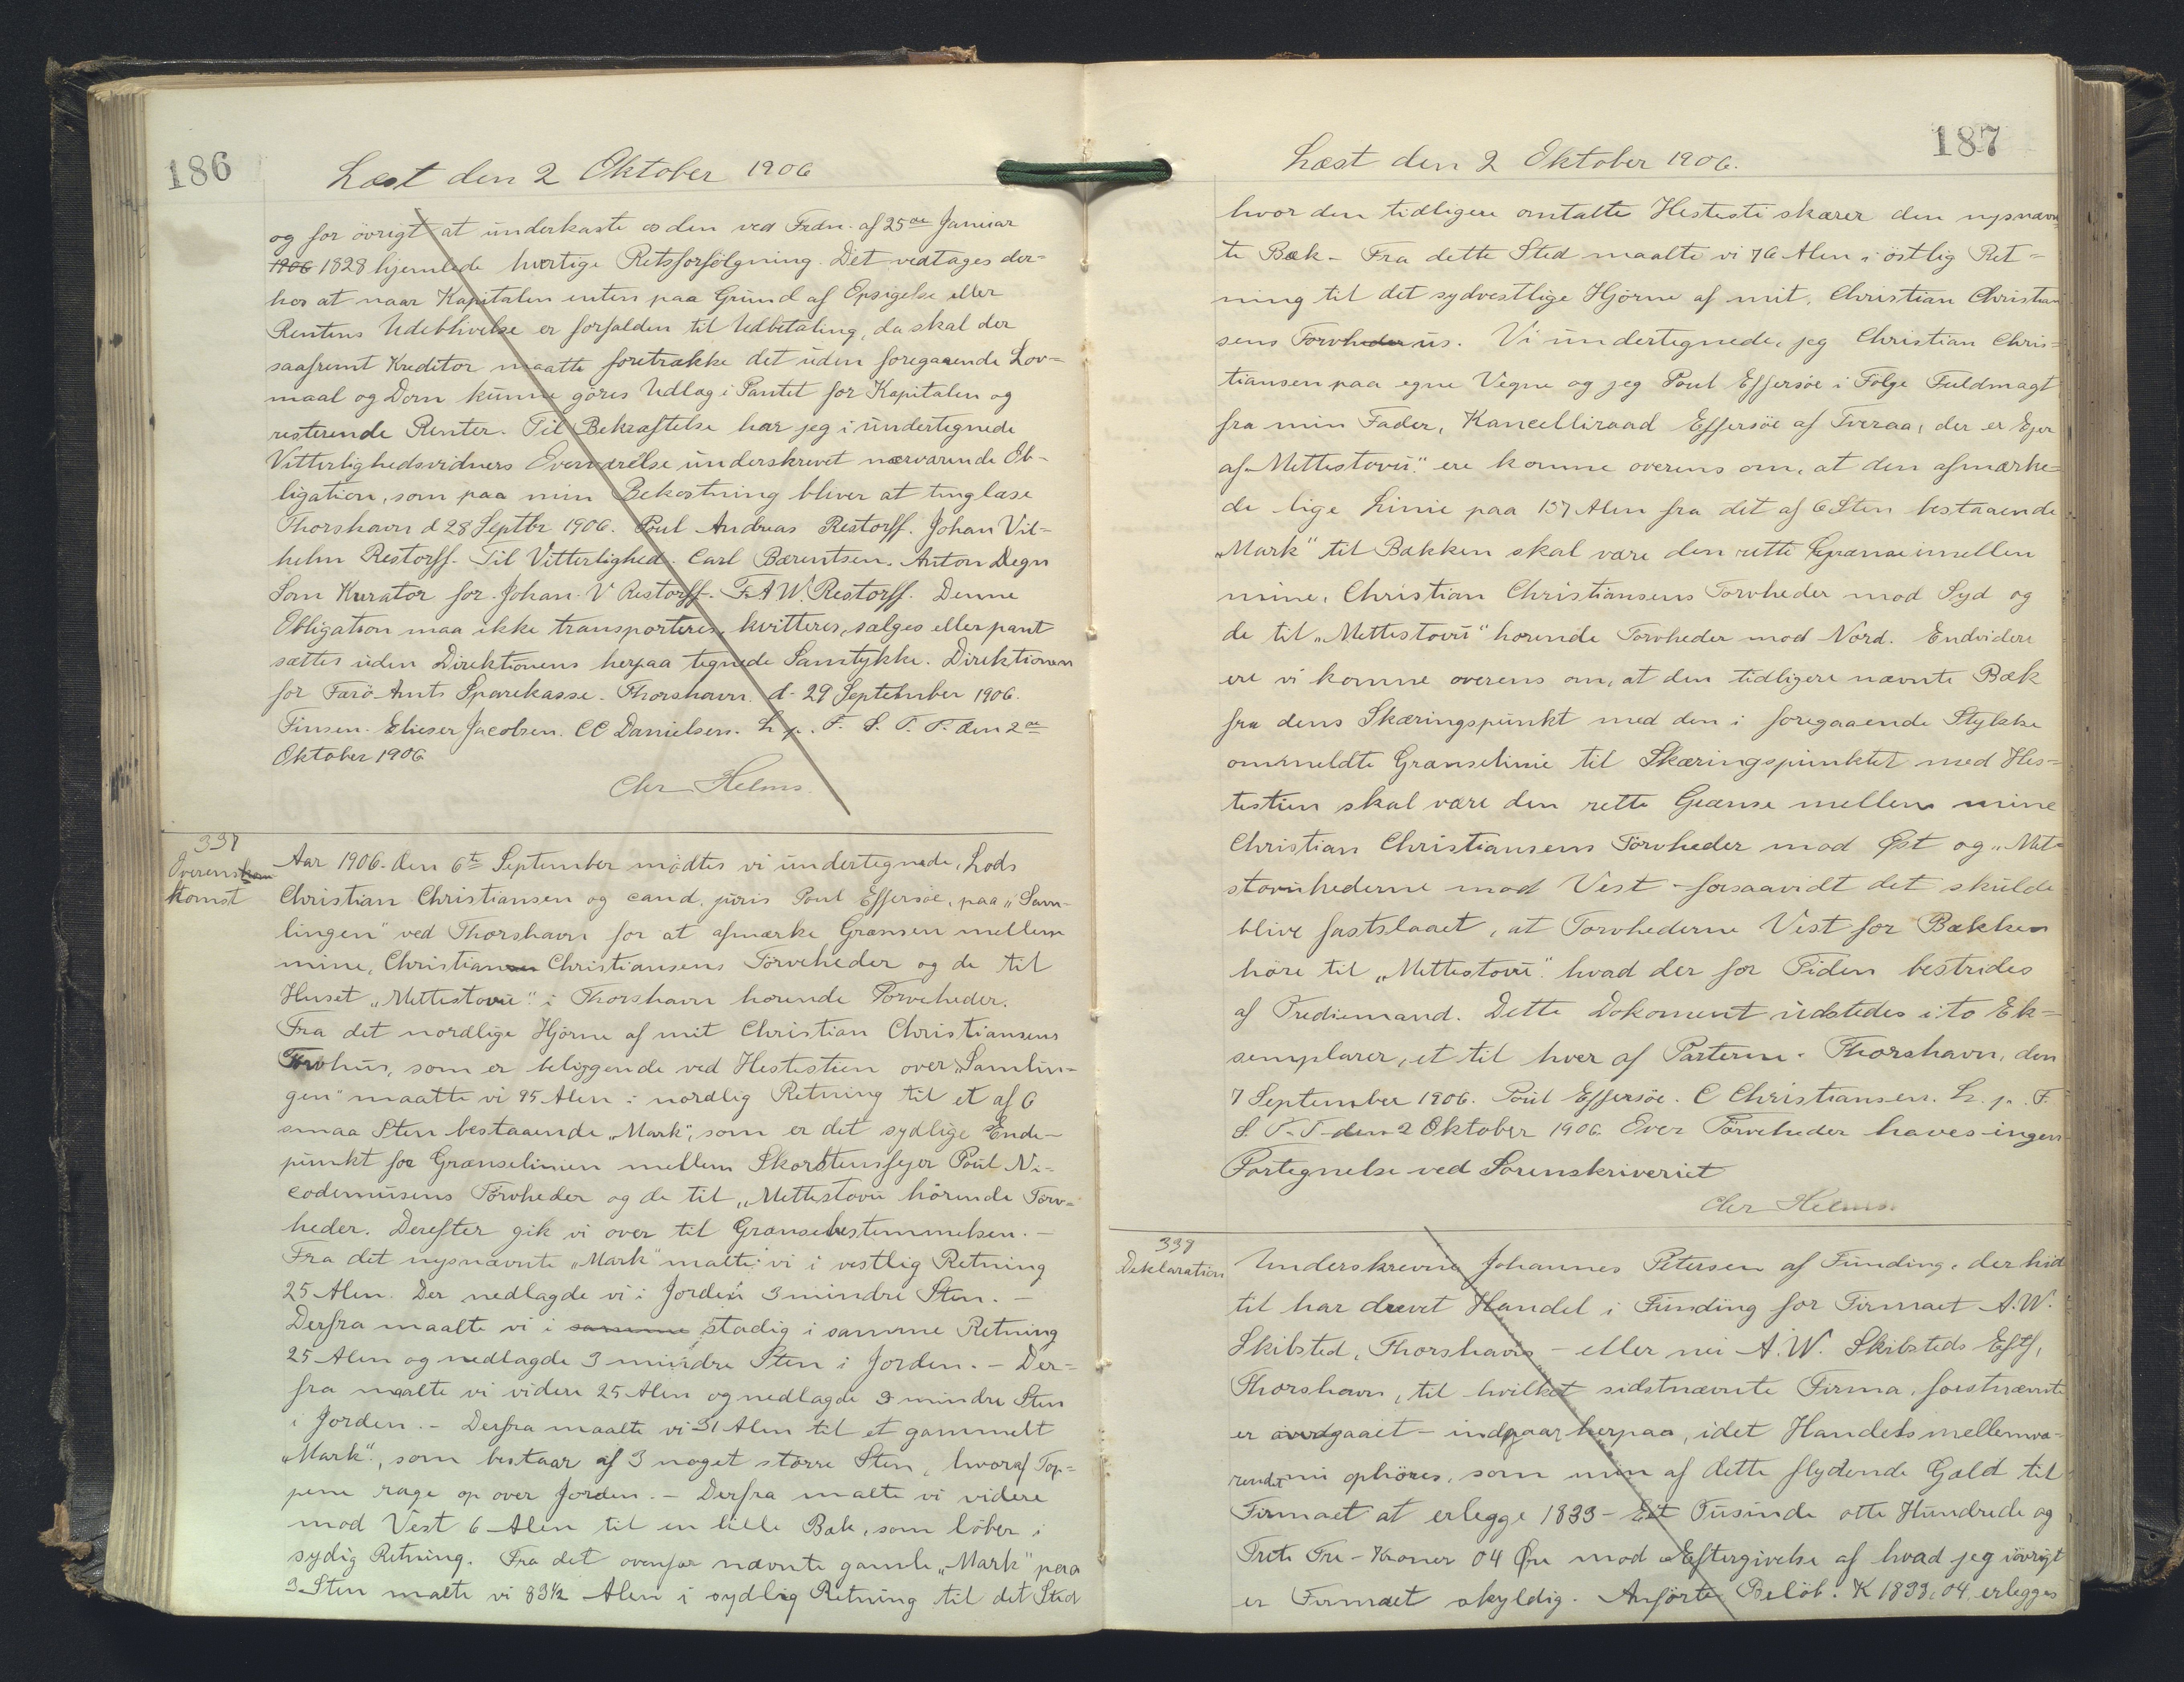 186
Læst den 2 Oktober 1906
og for övrigt at underkaste os den ved Frdn. af 25de Januar
1906 1828 hjemlede hurtige Retsforfölgning. Det vedtages der-
hos at naar Kapitalen enten paa Grund af Opsigelse eller
Rentens Udeblivelse er forfalden til Udbetaling, da skal der
saafremt Kreditor maatte foretrække det uden foregaaende Lov-
maal og Dom kunne göres Udlæg i Pantet for Kapitalen og
resterende Renter. Til Bekræftelse har jeg i undertegnede
Vitterlighedsvidners Overværelse underskrevet nærværende Ob-
ligation, som paa min Bekostning bliver at tinglæse
Thorshavn d 28 Septbr 1906. Poul Andreas Restorff. Johan Vil-
helm Restorff. Til Vitterlighed. Carl Bærentsen. Anton Degn
Som Kurator for Johan V Restorff. F. A W. Restorff. Denne
Obligation maa ikke transporteres, kvitteres, sælges eller pant
sættes uden Direktionens herpaa tegnede Samtykke. Direktionen
for Færö Amts Sparekasse. Thorshavn. d. 29 September 1906.
Finsen. Elieser Jacobsen. CC Danielsen. L p. F. S. T. P. den 2de
Oktober 1906
Chr Helms.
337
Overenskom
komst
Aar 1906. den 6te September mödtes vi undertegnede, Lods
Christian Christiansen og cand. juris Poul Effersöe, paa „Sam-
lingen" ved Thorshavn for at afmærke Grænsen mellem
mine, Christiansen Christiansens Törveheder og de til
Huset „Mettestovu" i Thorshavn hörende Törveheder.
Fra det nordlige Hjörne af mit Christian Christiansens
Törvhus, som er beliggende ved Hestestien over „Samlin-
gen" maatte vi 95 Alen i nordlig Retning til et af 6
smaa Sten bestaaende „Mark", som er det sydlige Ende-
punkt for Grænselinien mellem Skorstensfejer Poul Ni-
codemusens Törvheder og de til „Mettestovu hörende Törv-
heder. Derefter gik vi over til Grænsebestemmelsen. -
Fra det nysnævnte „Mark" malte vi i vestlig Retning
25 Alen. Der nedlagde vi i Jorden 3 mindre Sten. -
Derfra maalte vi i samme stadig i samme Retning
25 Alen og nedlagde 3 mindre Sten i Jorden. - Der-
fra maalte vi videre 25 Alen og nedlagde 3 mindre Sten
i Jorden. - Derfra maalte vi 31 Alen til et gammelt
„Mark", som bestaar af 3 noget större Sten, hvoraf Top-
pene rage op over Jorden. - Derfra malte vi videre
mod Vest 6 Alen til en lille Bæk, som löber i
sydig Retning. Fra det ovenfor nævnte gamle „Mark" paa
3 Sten malte vi 83½ Alen i sydlig Retning til det Sted
187
Læst den 2 Oktober 1906.
hvor den tidligere omtalte Hestesti skærer den nysnævn
te Bæk - Fra dette Sted maalte vi 76 Alen i östlig Ret-
ning til det sydvestlige Hjörne af mit, Christian Christian
sens Törvheder us. Vi undertegnede, jeg Christian Chris-
tiansen paa egne Vegne og jeg Poul Effersöe i Fölge Fuldmagt
fra min Fader, Kancelliraad Effersöe af Tveraa, der er Ejer
af „Mettestovu" ere komne overens om, at den afmærke-
de lige Linie paa 137 Alen fra det af 6 Sten bestaaende
„Mark" til Bækken skal være den rette Grænse imellem
mine, Christian Christiansens Torvheder mod Syd og
de til „Mettestovu" hörende Torvheder mod Nord. Endvidere
ere vi komne overens om, at den tidligere nævnte Bæk
fra dens Skæringspunkt med den i foregaaende Stykke
ommeldte Grænselinie til Skæringspunktet med Hes-
testien skal være den rette Grænse mellem mine
Christian Christiansens Törvheder mod Øst og „Met-
stovuhederne mod Vest - forsaavidt det skulde
blive fastslaaet, at Torvhederne Vest for Bækken
höre til „Mettestovu" hvad der for Tiden bestrides
af Trediemand. Dette Dokoment udstedes i to Ek-
semplarer, et til hver af Parterne. Thorshavn, den
7 September 1906. Poul Effersöe. C Christiansen. L. p. F.
S. T. T den 2 Oktober 1906. Over Törveheder haves ingen
Fortegnelse ved Sorenskriveriet
Chr Helms.
339
Deklaration
Underskrevne Johannes Petersen af Funding, der hid
til har drevet Handel i Funding for Firmaet A.W.
Skibsted, Thorshavn - eller nu A. W. Skibsteds Eftf,
Thorshavn, til hvilket sidstnævnte Firma, forstnævnte
er overgaaet - indgaar herpaa, idet Handelsmellemvæ-
rendet nu ophöres, som min af dette flydende Gæld til
Firmaet at erlegge 1833 - Eet Tusinde otte Hundrede og
Treti Tre - Kroner 04 Øre mod Eftergivelse af hvad jeg iövrigt
er Firmaet skyldig. Anförte Belöb: K 1833,04, erlegges